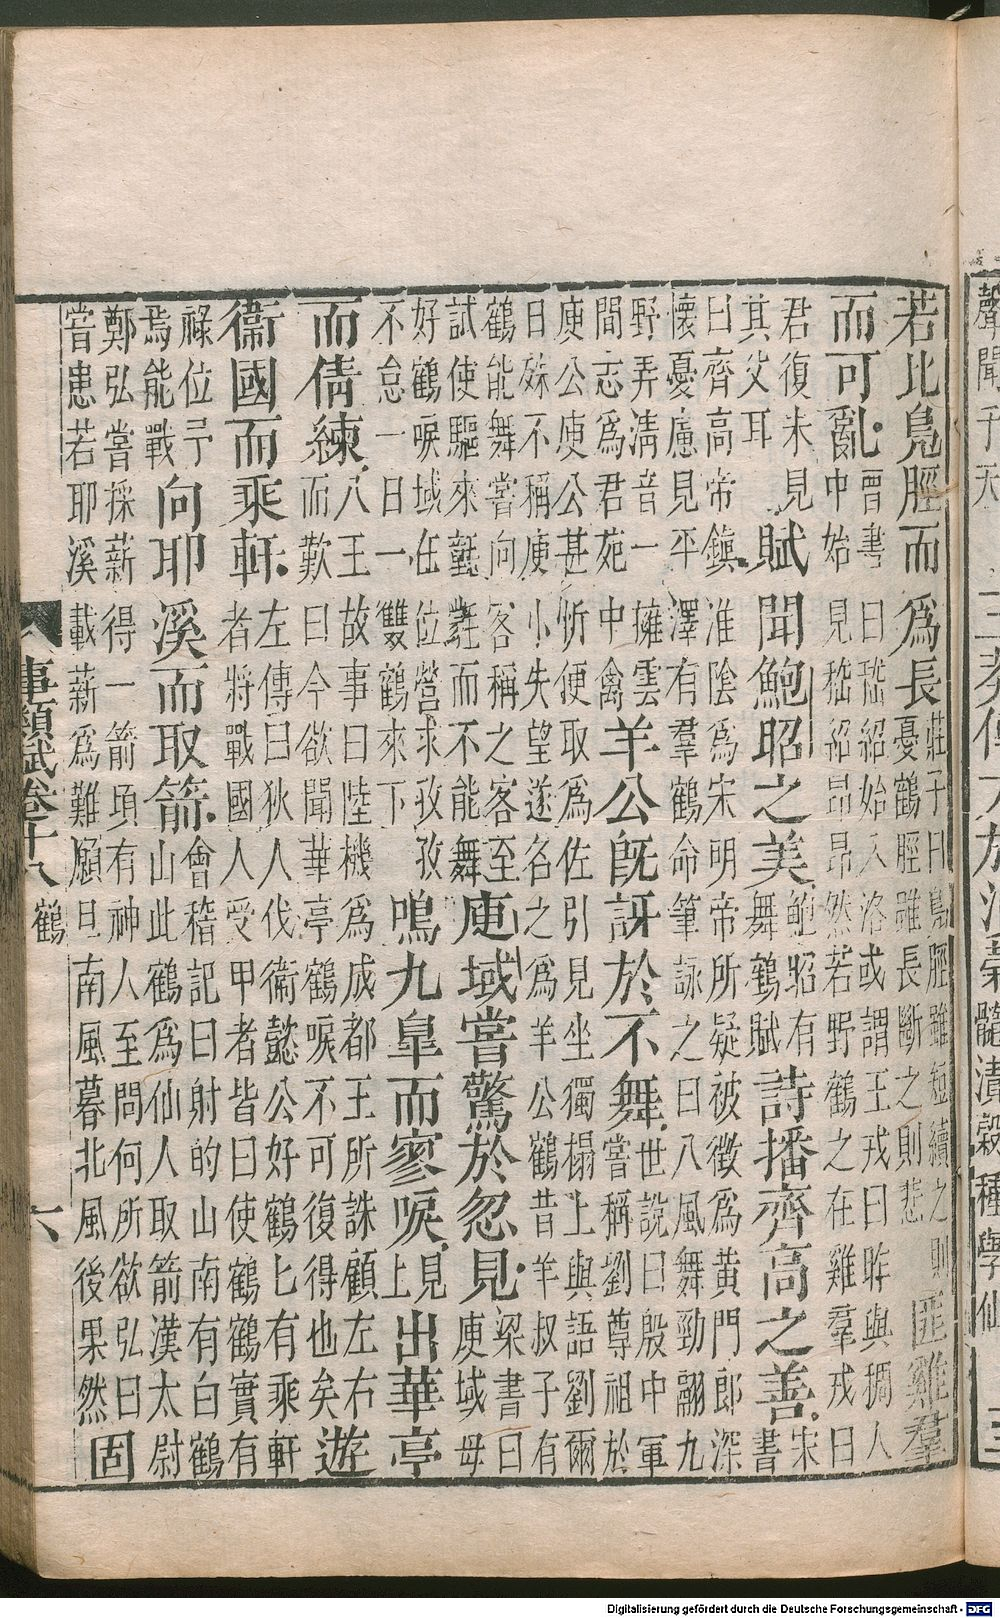 聲聞于天
若比鳧脛而爲長莊子曰鳧脛雖短續之則憂鶴脛雖長斷之則悲匪雞羣
而可亂晉書曰嵇紹始入洛或謂王戎曰昨與稠人中始見嵇紹昂昂然若野鶴之在雞羣戎曰
君復未見其父耳賦聞鮑昭之美鮑昭有舞鶴賦詩播齊高之善宋書
曰齊高帝鎮淮陰爲宋明帝所疑被徵爲黃門郎深懷憂慮見平澤有羣鶴命筆詠之曰八風舞勁翮九
野弄清音一擁雲間志爲君苑中禽羊公旣訝於不舞世說曰殷中軍嘗稱劉尊祖於
庾公庾公甚忻便取爲佐引見坐獨榻上與語劉爾日殊不稱庾小失望遂名之爲羊公鶴昔羊叔子有
鶴能舞嘗向客稱之客至試使驅來氃氋而不能舞庾域嘗驚於忽見梁書曰庾域母
好鶴唳域在位營求孜孜不怠一日一雙鶴來下鳴九皐而寥唳見上出華亭
而倩練八王故事曰陸機爲成都王所誅顧左右而歎曰今欲聞華亭鶴唳不可復得也矣遊
衞國而乘軒左傳曰狄人伐衞懿公好鶴匕有乘軒者將戰國人受甲者皆曰使鶴鶴實有
祿位予焉能戰向耶溪而取箭會稽記曰射的山南有白鶴山此鶴爲仙人取箭漢太尉
鄭弘嘗採薪得一箭頃有神人至問何所欲弘曰嘗患若耶溪載薪爲難願旦南風暮北風後果然固
事類賦卷十八 鶴 六
Digitalisierung gefördert durch die Deutsche Forschungsgemeinschaft - DFG